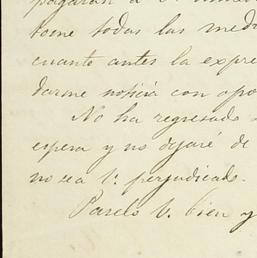 pagarán á
tome todas las med
cuanto antes la expre
darme noticia con opo
No ha regresado
espera y no dejaré de
no sea V. perjudicado.
Páselo V. bien y